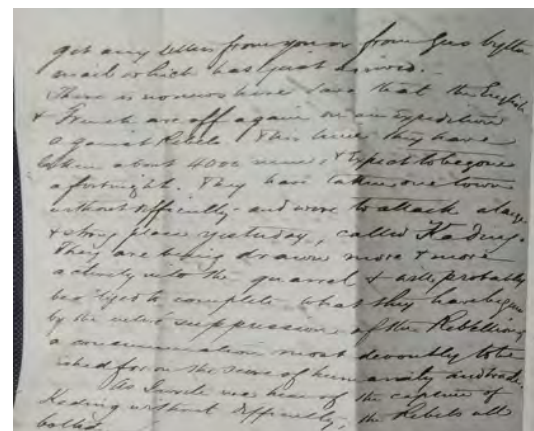 get any letters from you or from Gus by the
mail which has just arrived. -
There is no news here save that the English
& French are off again on an Expedition
against Rebels. This time they have
taken about 4000 men, & expect to be gone
a fortnight. They have taken one town
without difficulty and were to attack a large
& strong place yesterday, called Kading.
They are being drawn more & more
actively into the quarrel & will probably
be obliged to complete what they have begun
by the entire suppression of the Rebellion,
a consummation most devoutly to be
wished for on the score of humanity and trade.
As I write we hear of the capture of
Kading without difficulty, the Rebels all
bolted.